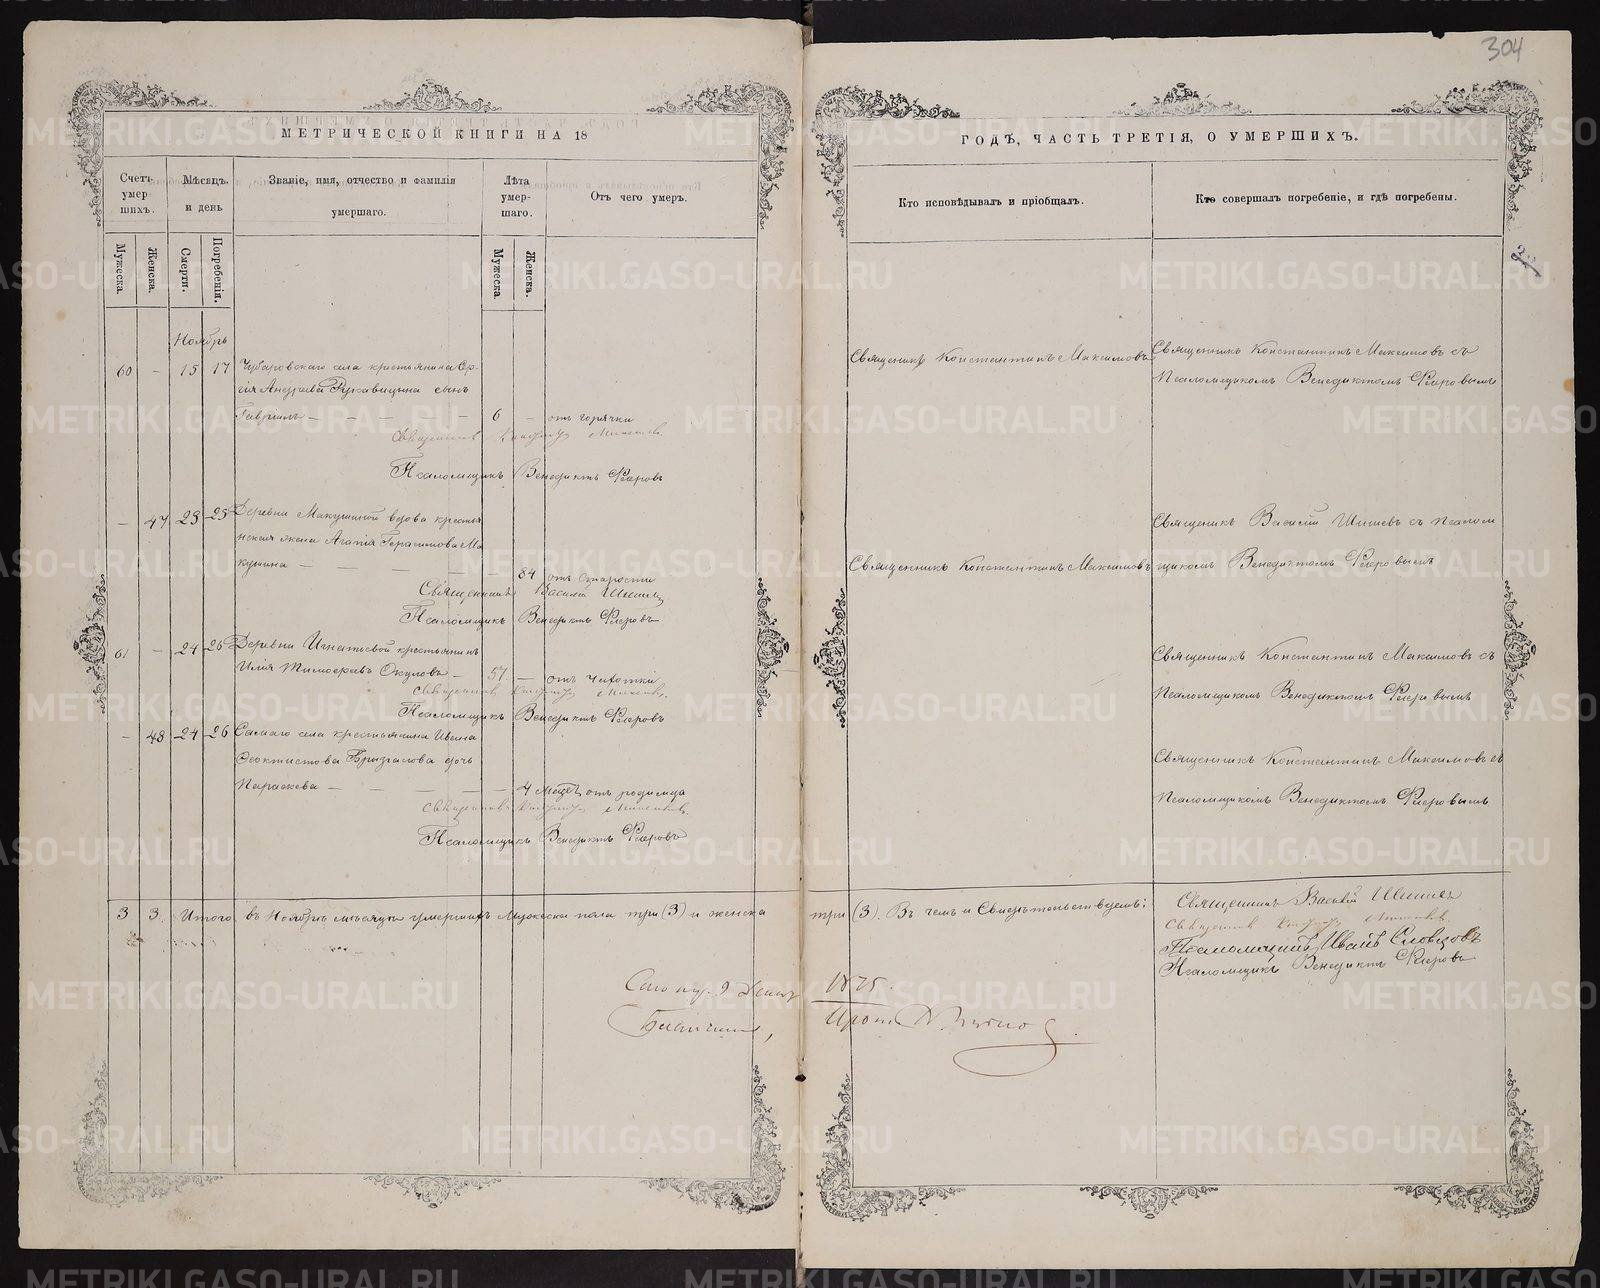 304
МЕТРИЧЕСКОЙ КНИГИ НА 18
Счетъ умер шихъ.
Мѣсяцъ и день
Званіе, имя, отчество и фамилія умершаго.
Лѣта умер- шаго.
Отъ чего умеръ.
Мужеска.
Женска.
Смерти.
Погребенія.
Мужеска.
Женска.
Ноябрь
60 - 15 17 Чубаровскаго села крестьянина Сер-
гія Андреева Рукавицына сынъ
Гавріилъ - - - - - 6 - отъ горячки
Священникъ
Псаломщикъ Венедиктъ Флеровъ
- 47 23 25 Деревни Макушиной вдова крестья
нская жена Агапія Герасимова Ма
кушина - - - - - 84 отъ старости
Священникъ Василій Шишевъ
Псаломщикъ Венедиктъ Флеровъ
61 - 24 26 Деревни Игнатьевой крестьянинъ
Илія Тимофеевъ Окуловъ - 57 - отъ чахотки
Священникъ
Псаломщикъ Венедиктъ Флеровъ
- 48 24 26 Самаго села крестьянина Ивана
Феоктистова дочь
Параскева - - - - 4 мѣсц. отъ родимца
Священникъ
Псаломщикъ Венедиктъ Флеровъ
3 3 Итого въ Ноябрѣ мѣсяцѣ умершихъ Мужеска пола три (3) и женска
9
ГОДЪ, ЧАСТЬ ТРЕТІЯ, О УМЕРШИХЪ.
Кто исповѣдывалъ и пріобщалъ.
Кто совершалъ погребеніе, и гдѣ погребены.
Священникъ Константинъ Максимовъ
Священникъ Константинъ Максимовъ съ
Псаломщикомъ Венедиктомъ Флеровымъ
Священникъ Василій Шишевъ съ псалом
Священникъ Константинъ Максимовъ
щикомъ Венедиктомъ Флеровымъ
Священникъ Константинъ Максимовъ съ
Псаломщикомъ Венедиктомъ Флеровымъ
Священникъ Константинъ Максимовъ съ
Псаломщикомъ Венедиктомъ Флеровымъ
три (3). Въ чемъ и Свидѣтельствуемъ:
Священникъ Василій Шишевъ
Священникъ
Псаломщикъ Иванъ Словцовъ
Псаломщикъ Венедиктъ Флеровъ
1875.
METRIKI.GASO-URAL.RU